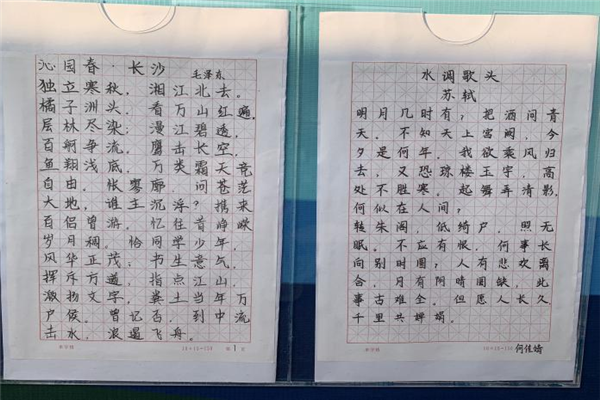 沁园春·长沙
毛泽东
独立寒秋，湘江北去。
橘子洲头，看万山红遍，
层林尽染；漫江碧透，
百舸争流。鹰击长空，
鱼翔浅底，万类霜天竞
自由，怅寥廓，问苍茫
大地，谁主沉浮？携来
百侣曾游，忆往昔峥嵘
岁月稠，恰同学少年，
风华正茂；书生意气，
挥斥方遒，指点江山，
激扬文字，粪土当年万
户侯。曾记否，到中流
击水，浪遏飞舟。
第1页
水调歌头
苏轼
明月几时有；把酒问青
天。不知天上宫阙，今
夕是何年，我欲乘风归
去，又恐琼楼玉宇，高
处不胜寒。起舞弄清影，
何似在人间；
转朱阁，低绮户，照无
眠。不应有恨，何事长
向别时圆；人有悲欢离
合，月有阴晴圆缺，此
事古难全，但愿人长久
千里共婵娟。
何佳婧